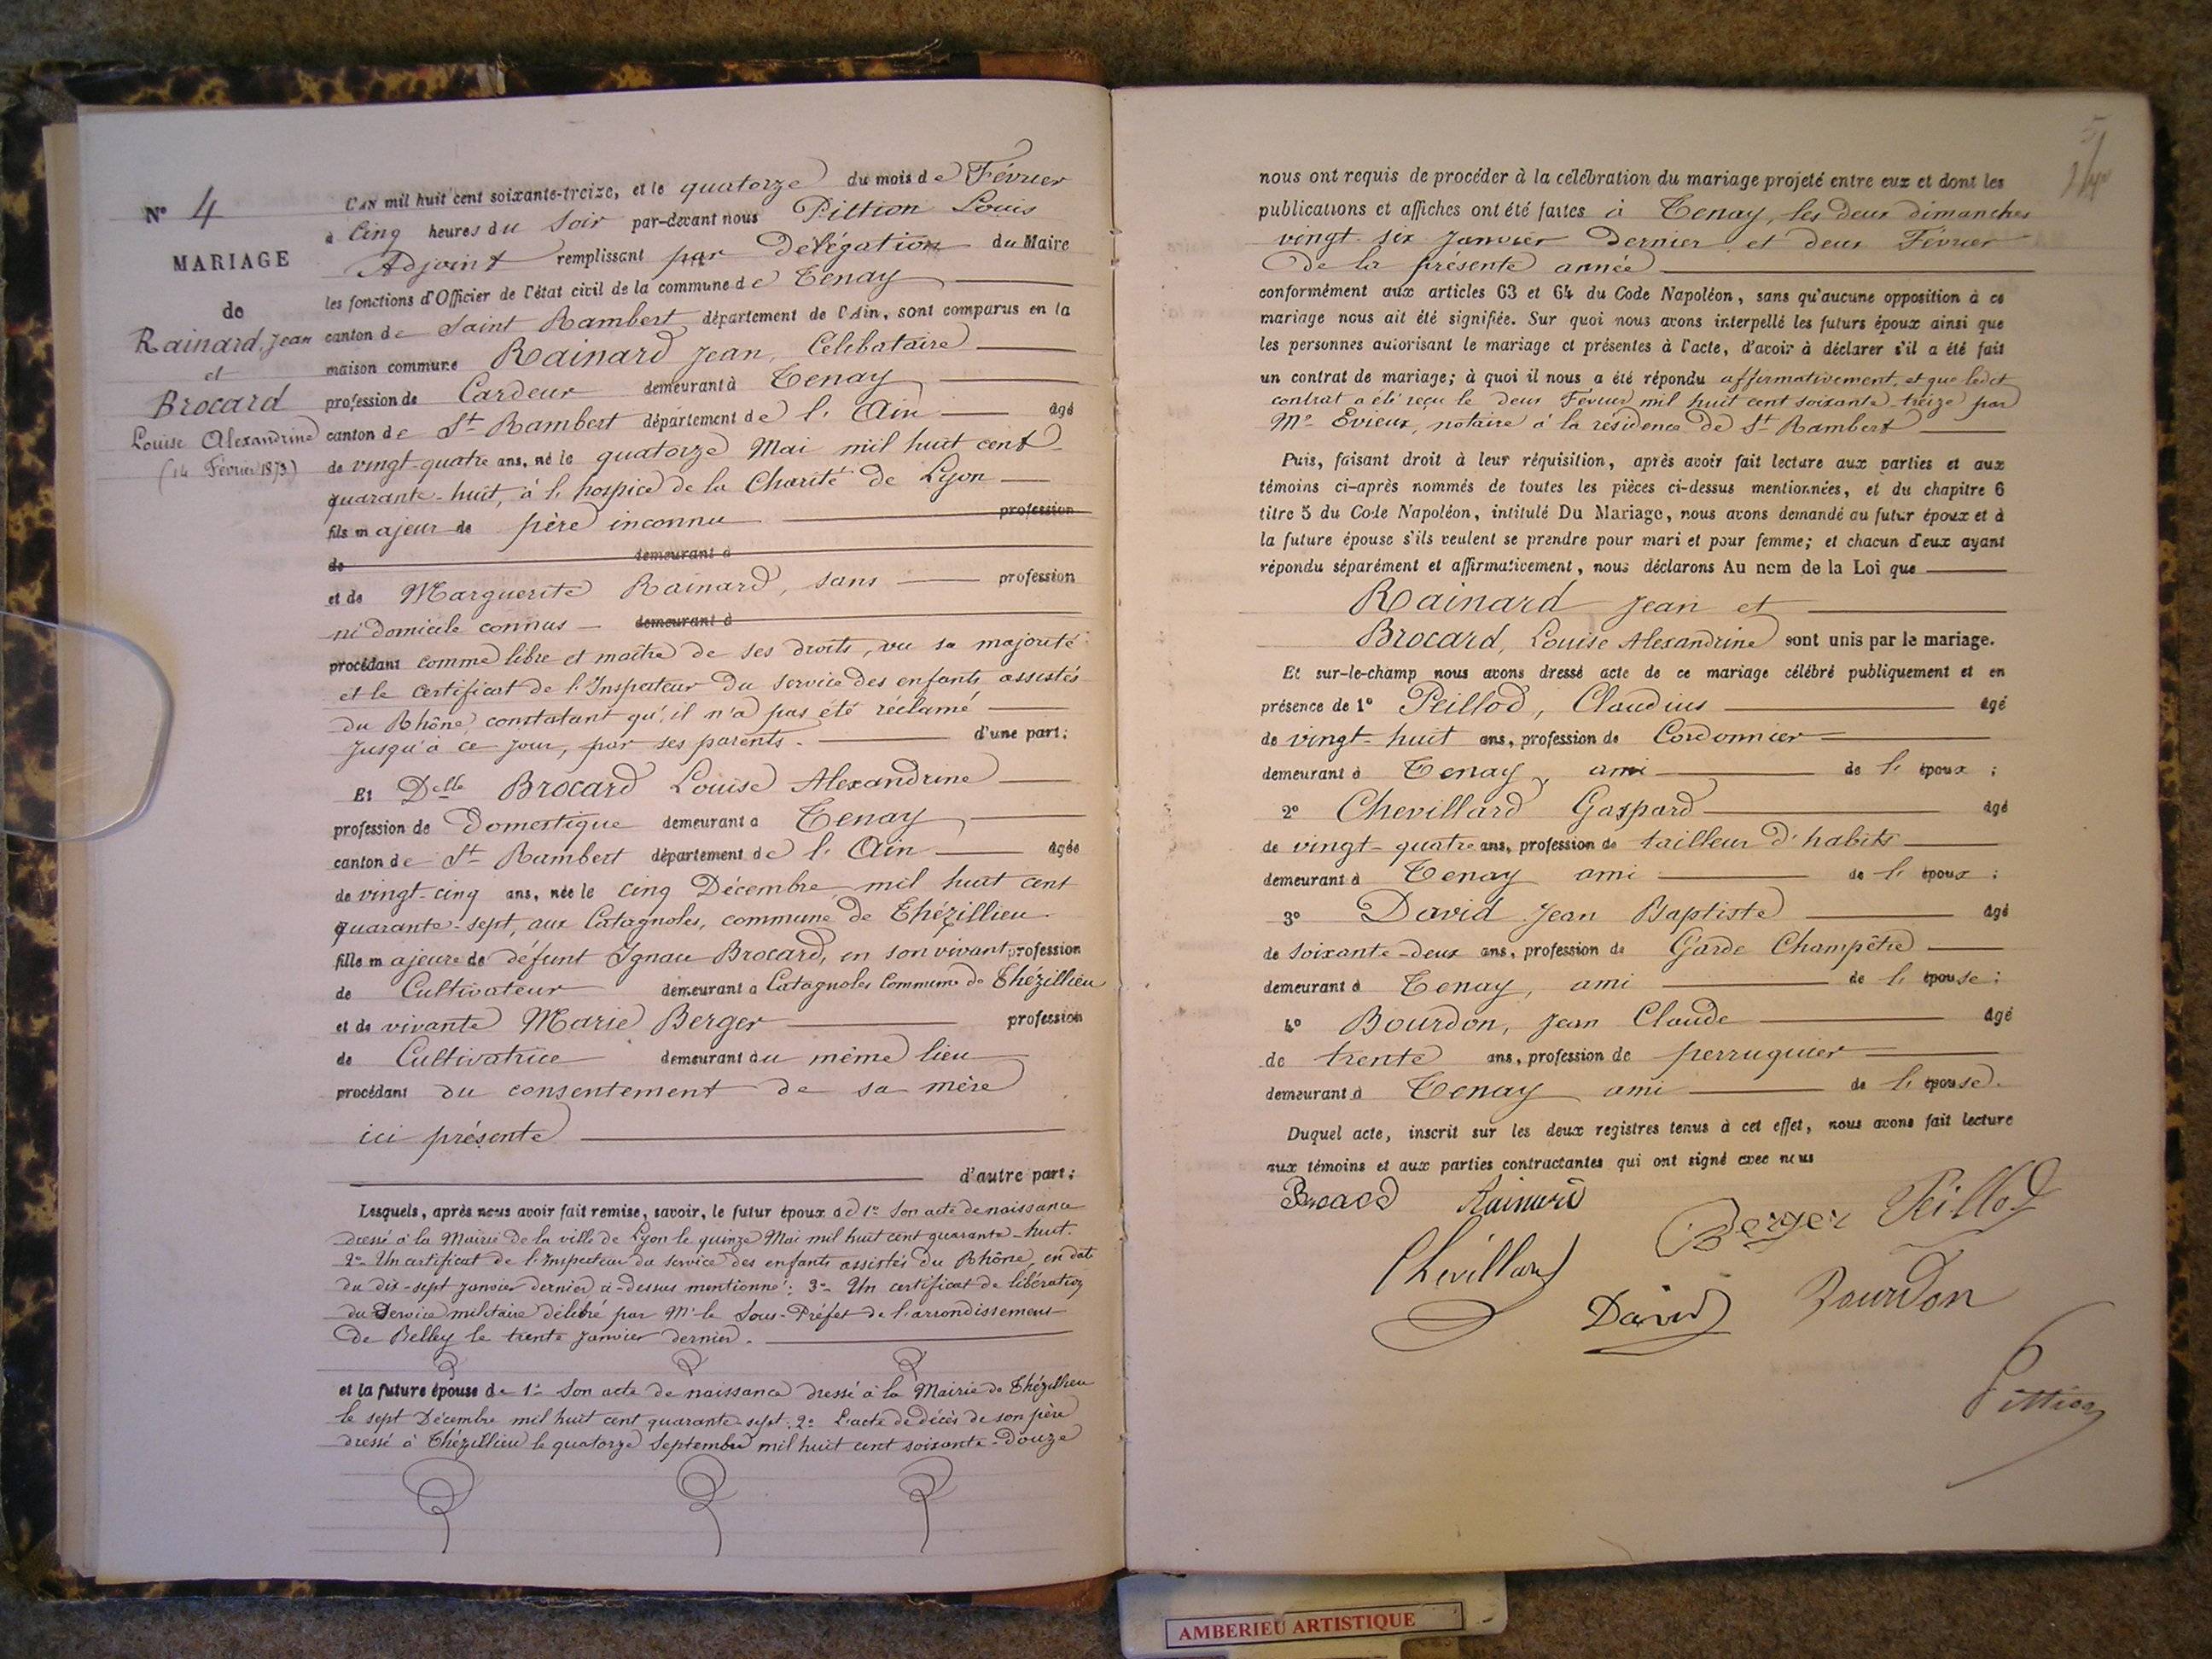 N° 4
MARIAGE
de
Rainard, Jean
et
Brocard
Louise Alexandrine
(14 Février 1873)
L'AN mil huit cent soixante-treize, et le quatorze du mois de Février
à Cinq heures du Soir par-devant nous Pittion Louis
Adjoint remplissant par Délégation du Maire
les fonctions d'Officier de l'état civil de la commune de Tenay
canton de Saint Rambert département de l'Ain, sont comparus en la
maison commune Rainard Jean, Célibataire
profession de Cardeur demeurant à Tenay
canton de St Rambert département de l'Ain âgé
de vingt-quatre ans, né le quatorze Mai mil huit cent
quarante-huit, à l'hospice de la Charité de Lyon
fils majeur de père inconnu profession
de demeurant à
et de Marguerite Rainard, sans profession
ni domicile connus demeurant à
procédant comme libre et maître de ses droits, vu sa majorité
et le certificat de l'Inspecteur du service des enfants assistés
du Rhône, constatant qu'il n'a pas été réclamé
jusqu'à ce jour, par ses parents. d'une part;
Et Delle Brocard Louise Alexandrine
profession de Domestique demeurant à Tenay
canton de St Rambert département de l'Ain âgée
de vingt-cinq ans, née le cinq Décembre mil huit cent
quarante-sept, aux Catagnoles, commune de Thézillieu
fille majeure de défunt Ignace Brocard, en son vivant profession
de Cultivateur demeurant à Catagnoles Commune de Thézillieu
et de vivante Marie Berger profession
de Cultivatrice demeurant au même lieu
procédant du consentement de sa mère
ici présente
d'autre part;
Lesquels, après nous avoir fait remise, savoir, le futur époux de 1° Son acte de naissance
dressé à la Mairie de la ville de Lyon le quinze Mai mil huit cent quarante-huit.
2° Un certificat de l'Inspecteur du service des enfants assistés du Rhône, en date
du dix-sept janvier dernier ci-dessus mentionné; 3° Un certificat de libération
du Service militaire délivré par Mr le Sous-Préfet de l'arrondissement
de Belley le trente janvier dernier.
et la future épouse de 1° Son acte de naissance dressé à la Mairie de Thézillieu
le sept Décembre mil huit cent quarante-sept; 2° L'acte de décès de son père
dressé à Thézillieu le quatorze Septembre mil huit cent soixante-douze
nous ont requis de procéder à la célébration du mariage projeté entre eux et dont les
publications et affiches ont été faites à Tenay, les deux dimanches
vingt-six Janvier dernier et deux Février
de la présente année
conformément aux articles 63 et 64 du Code Napoléon, sans qu'aucune opposition à ce
mariage nous ait été signifiée. Sur quoi nous avons interpellé les futurs époux ainsi que
les personnes autorisant le mariage et présentes à l'acte, d'avoir à déclarer s'il a été fait
un contrat de mariage; à quoi il nous a été répondu affirmativement, et que ledit
contrat a été reçu le deux Février mil huit cent soixante-treize par
Me Evieux, notaire à la résidence de St Rambert
Puis, faisant droit à leur réquisition, après avoir fait lecture aux parties et aux
témoins ci-après nommés de toutes les pièces ci-dessus mentionnées, et du chapitre 6
titre 5 du Code Napoléon, intitulé Du Mariage, nous avons demandé au futur époux et à
la future épouse s'ils veulent se prendre pour mari et pour femme; et chacun d'eux ayant
répondu séparément et affirmativement, nous déclarons Au nom de la Loi que
Rainard Jean et
Brocard, Louise Alexandrine sont unis par le mariage.
Et sur-le-champ nous avons dressé acte de ce mariage célébré publiquement et en
présence de 1° Peillod, Claudius âgé
de vingt-huit ans, profession de Cordonnier
demeurant à Tenay, ami de l'époux;
2° Chevillard Gaspard âgé
de vingt-quatre ans, profession de tailleur d'habits
demeurant à Tenay ami de l'époux;
3° David Jean Baptiste âgé
de soixante-deux ans, profession de Garde Champêtre
demeurant à Tenay, ami de l'épouse;
4° Bourdon, Jean Claude âgé
de trente ans, profession de perruquier
demeurant à Tenay ami de l'épouse.
Duquel acte, inscrit sur les deux registres tenus à cet effet, nous avons fait lecture
aux témoins et aux parties contractantes qui ont signé avec nous
Brocard Rainard Berger Peillod
Chevillard David Bourdon
Pittion
AMBERIEU ARTISTIQUE